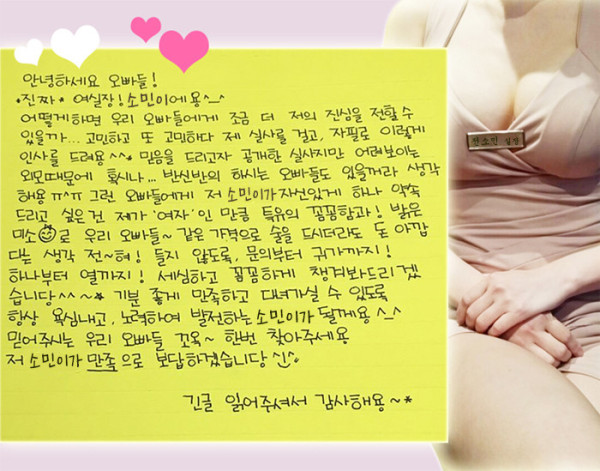 안녕하세요 오빠들!
*진짜* 여실장! 소민이에용^_^
어떻게하면 우리 오빠들에게 조금 더 저의 진심을 전할 수
있을까... 고민하고 또 고민하다 제 실사를 걸고, 자필로 이렇게
인사를 드려용^^* 믿음을 드리고자 공개한 실사지만 어려보이는
외모때문에 혹시나... 반신반의 하시는 오빠들도 있을꺼라 생각
해용 ㅠ^ㅠ 그런 오빠들에게 저 소민이가 자신있게 하나 약속
드리고 싶은건 제가 '여자'인 만큼 특유의 꼼꼼함과! 밝은
미소로 우리 오빠들~ 같은 가격으로 술을 드시더라도 돈 아깝
다는 생각 전~혀! 들지 않도록, 문의부터 귀가까지!
하나부터 열까지! 세심하고 꼼꼼하게 챙겨봐드리겠
습니당^^~* 기분 좋게 만족하고 다녀가실 수 있도록
항상 욕심내고, 노력하여 발전하는 소민이가 될게용^_^
믿어주시는 우리 오빠들 꼬옥~ 한번 찾아주세용
저 소민이가 만족으로 보답하겠습니당^^
긴글 읽어주셔서 감사해용~*